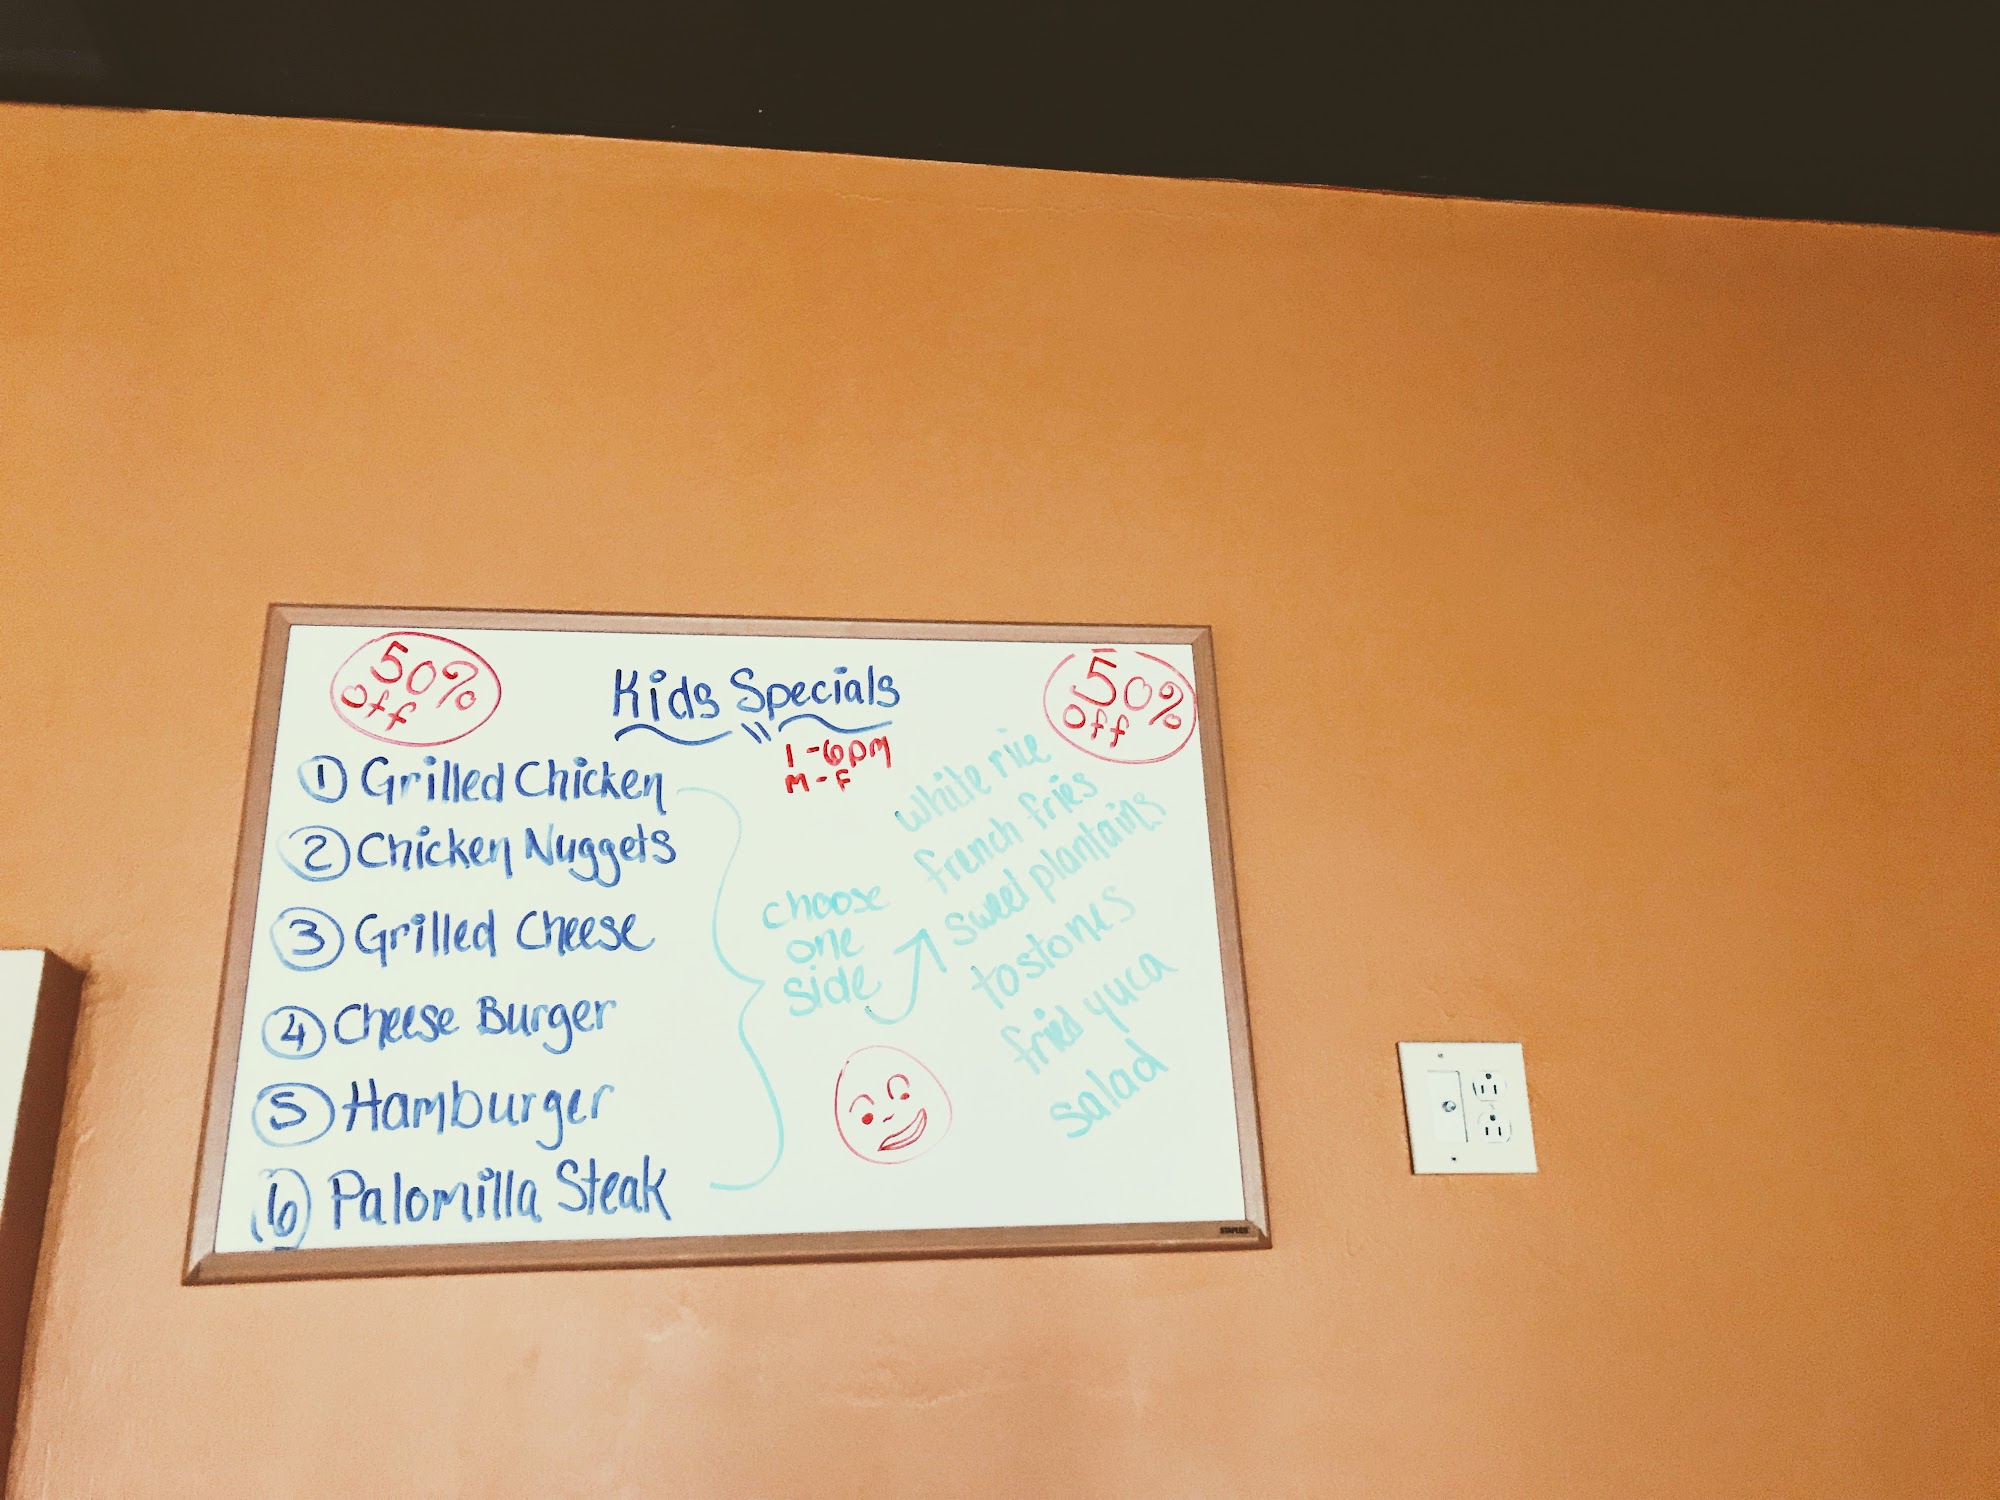 50%
off
Kids Specials
50%
off
1-6pm
M-F
1 Grilled Chicken
2 Chicken Nuggets
3 Grilled Cheese
4 Cheese Burger
5 Hamburger
6 Palomilla Steak
choose
one
side
white rice
french fries
sweet plantains
tostones
fried yuca
salad
STAPLES